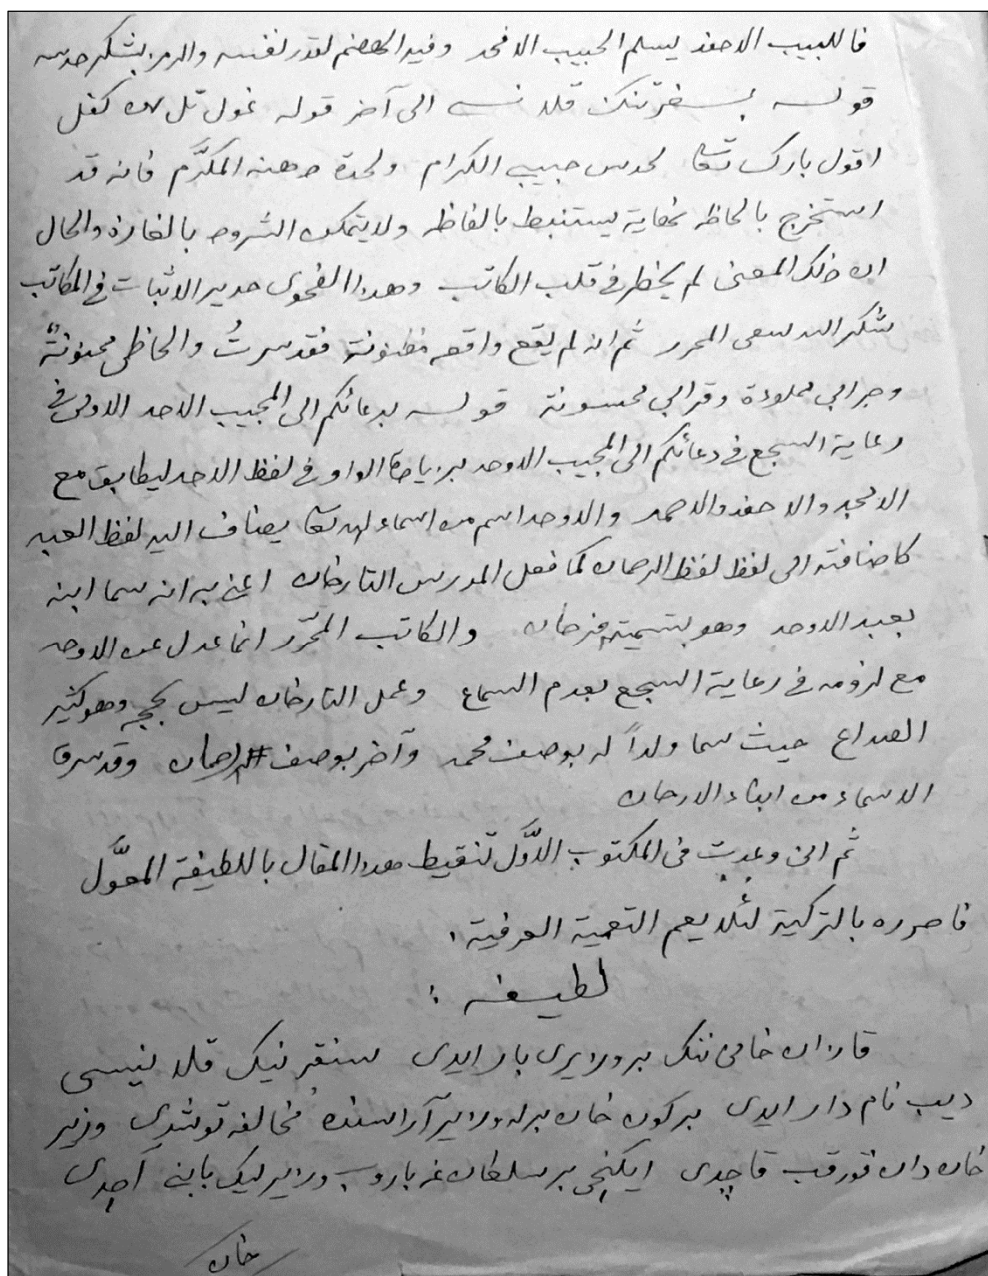 فاللبيب الاحفد يسلم الحبيب الامجد وفيه الهضم لقدر نفسه والرمز بشكر حدسه
قوله بسفرتنك قلانسى الى آخر قوله غول تل كفل
اقول بارك تعا لحدس حبيبي الكرام ولحدة ذهنه المكرّم فانه قد
استخرج بالحاظه نخفاية يستنبط بالفاظه ولا يتمكن الشروح بالغازه والحال
ان ذلك المعنى لم يخطر فى قلب الكاتب وهذا الفحوى جدير الاثبات فى المكاتب
شكر الله سعى المحرر ثم ان لم يقع واقعه مظنونة فقد سرتُ والحاظى ممنونةٌ
وجرابى مملوءة وقرابى محسونة قوله بدعائكم الى المجيب الاحد الاولى فى
رعاية السجع فى دعائكم الى المجيب الاوحد بزيادة الواو فى لفظ الاحد ليطابق مع
الامجد والاحفد والاحمد والاوحد اسم من اسماء الله تعا يضاف اليه لفظ العبد
كاضافته الى لفظ لفظ الرحمان كما فعل المدرس التارخان اعنى به انه سما ابنه
بعبد الاوحد وهو بتسميته فرحان والكاتب المحرّر انما عدل عن الاوحد
مع لزومه فى رعاية السجع بعدم السماع وعمل التارخان ليس بحجة وهو كثير
الصداع حيث سما ولداً له بوصف محمد وآخر بوصف الرحمان وقد سرق
الاسماء من ابناء الارحان
ثم انى وعدت فى المكتوب الاوّل تنقيط هذا المقال باللطيفة المعوَّل
فاحرره بالتركية لئلا يعم التعمية العرفية.
لطيفه :
قازان خانى ننك بر وزيرى بار ايدى سنقر نيك قلانيسى
ديب نام دار ايدى بركون خان برله وزير آراسنده مخالفه توشدى وزير
خان دان قورقب قاچدى ايكنچى بر سلطان غه باروب وزيرليك بابنى آچدى
خان